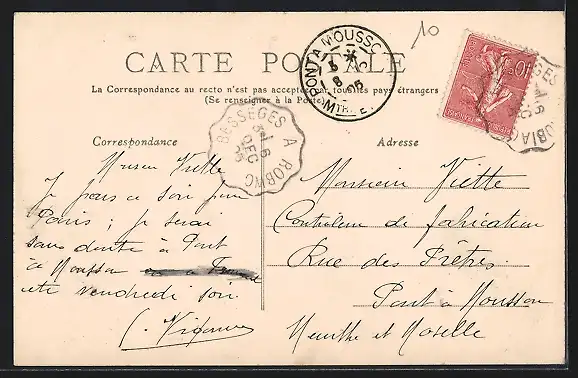 10
CARTE POSTALE
La Correspondance au recto n'est pas acceptée par tous les pays étrangers
(Se renseigner à la Poste)
PONT A MOUSSON
8
05
MTHE
BESSÈGES A ROBIAC
6
DEC
05
10
Correspondance
Adresse
Viette
Je pars ce soir pour
Paris ; je serai
sans doute à Pont
à Mousson
vendredi soir.
Monsieur Viette
Contrôleur de fabrication
Rue des Prêtres
Pont à Mousson
Meurthe et Moselle